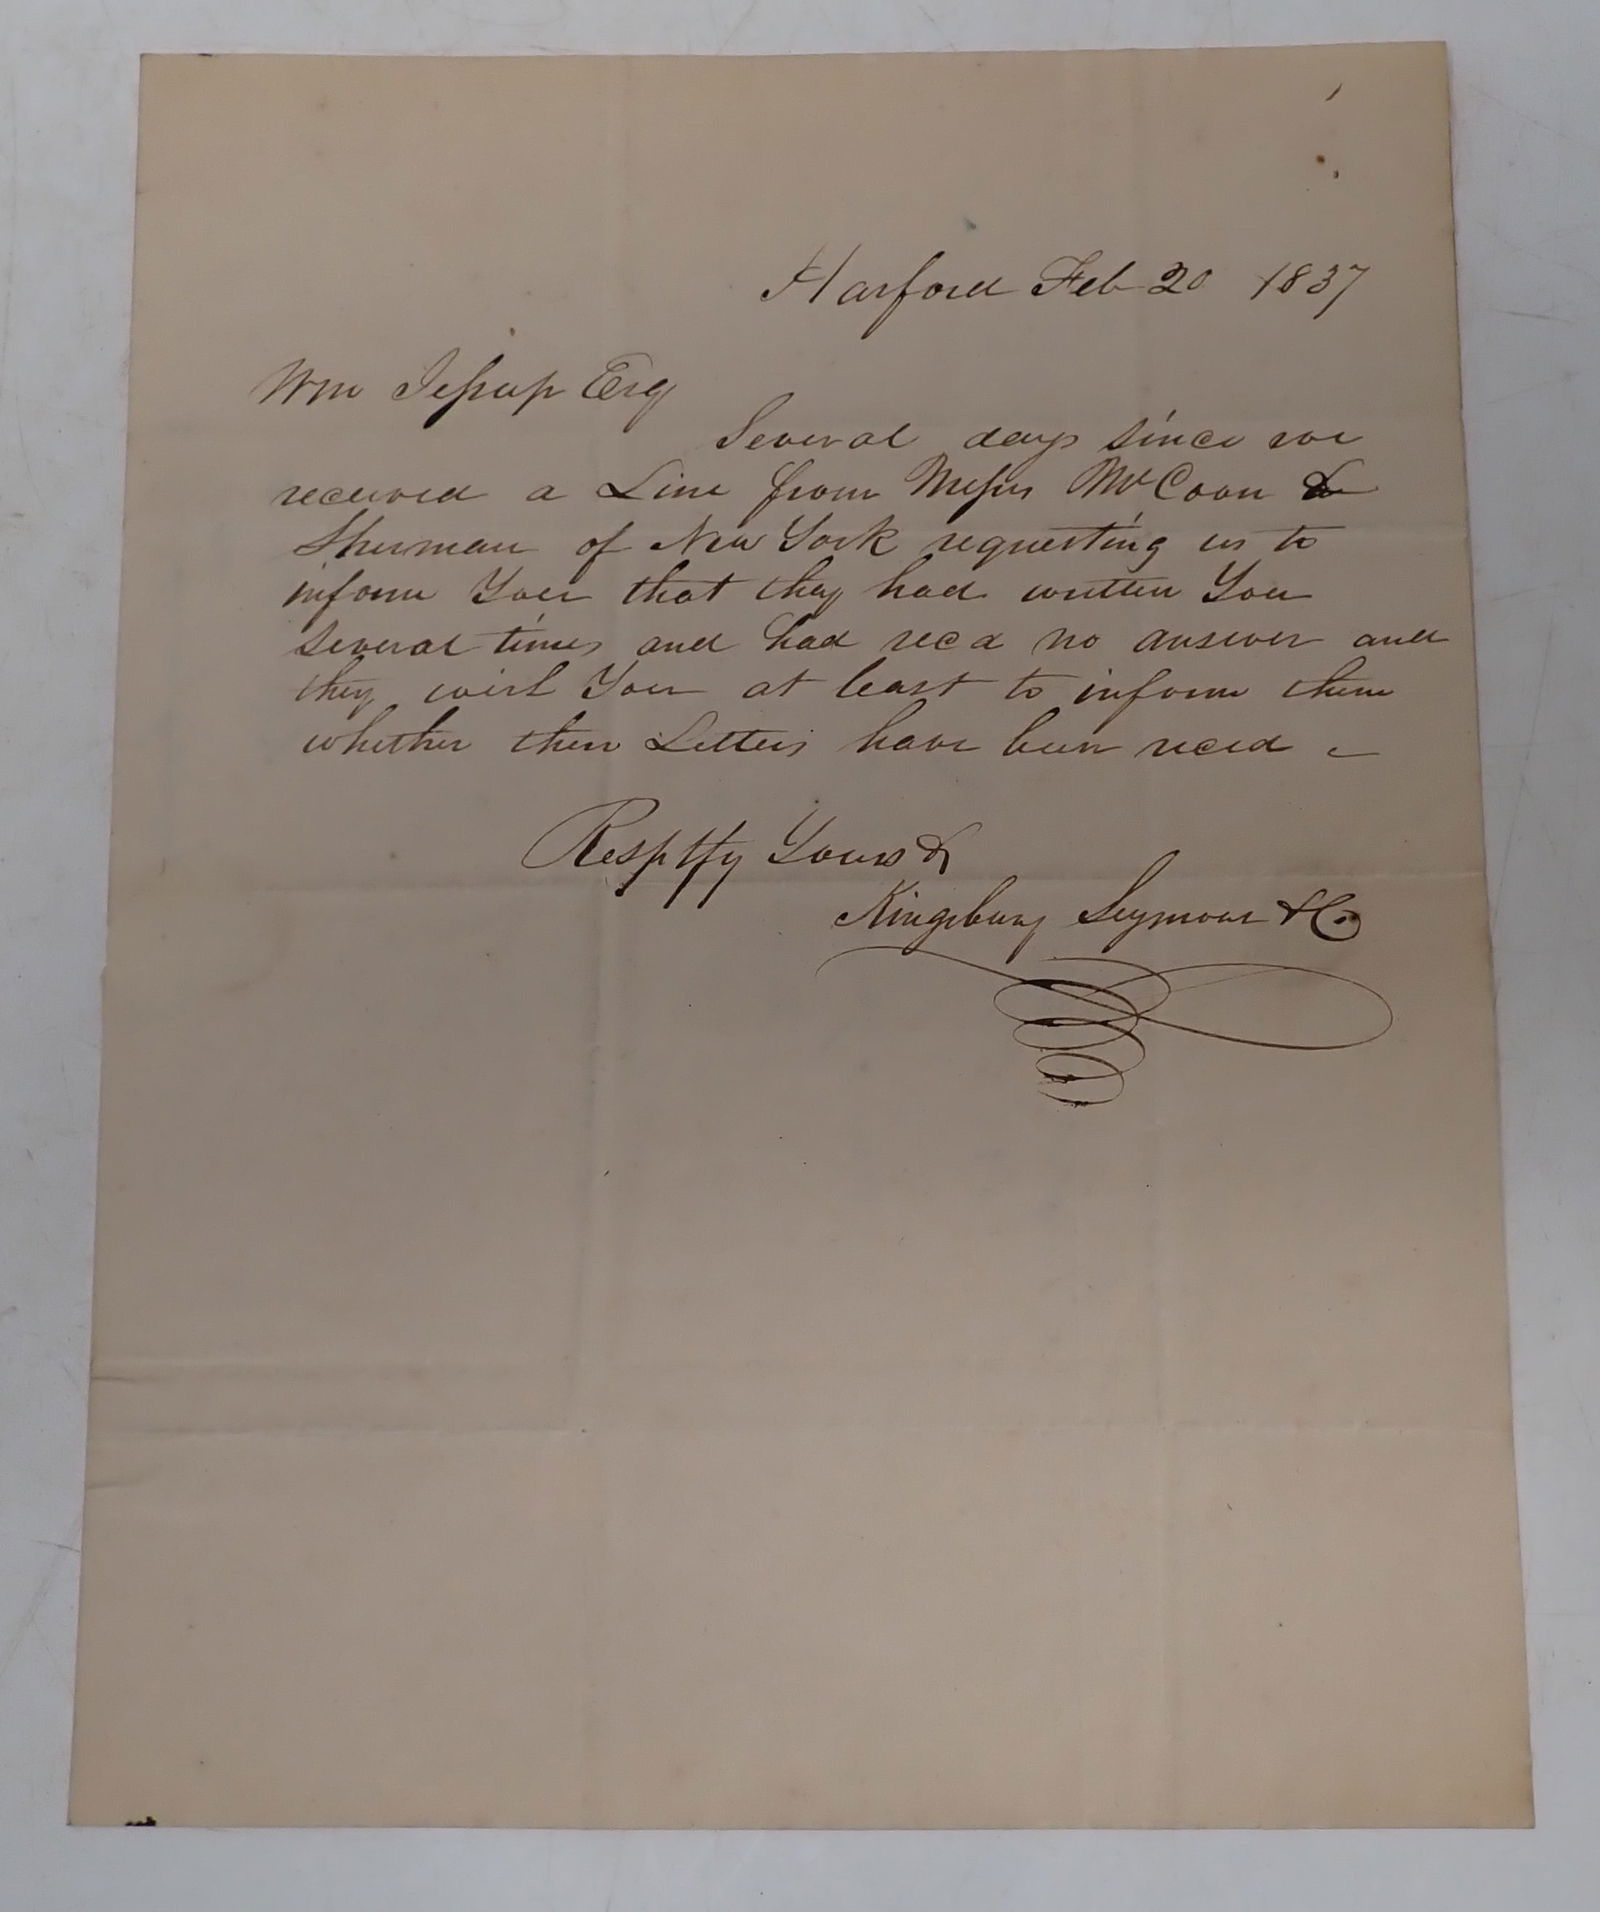 Harford Feb 20 1837
Wm Jessup Esq
Several days since we
received a Line from Messrs McCoon &
Sherman of New York requesting us to
inform You that they had written You
several times and had recd no answer and
they wish You at least to inform them
whether their Letters have been recd –
Resptfy Yours &
Kingsbury Seymour & Co.